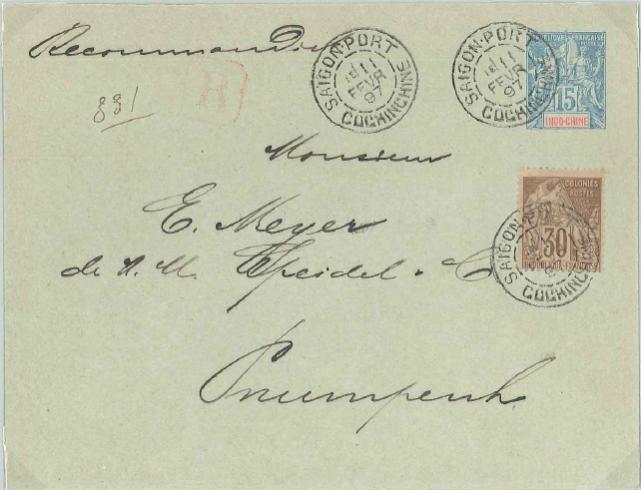 Recommandée
SAIGON-PORT
11
FEVR
97
COCHINCHINE
SAIGON-PORT
11
FEVR
97
COCHINCHINE
POSTES
15
INDO-CHINE
R
831
Monsieur
E. Meyer
de M. M. Speidel & C
Pnumpenh
COLONIES
POSTES
30
SAIGON-PORT
COCHINCHINE